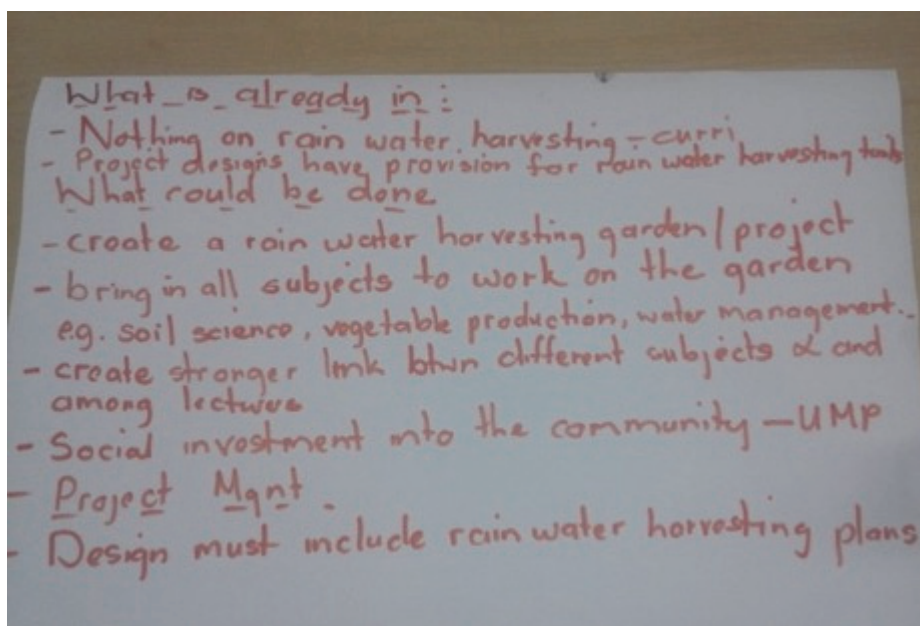 What is already in :
- Nothing on rain water harvesting - curri
- Project designs have provision for rain water harvesting tanks
What could be done
- create a rain water harvesting garden/project
- bring in all subjects to work on the garden
e.g. soil science, vegetable production, water management..
- create stronger link btwn different subjects & and
among lectures
- Social investment into the community - UMP
- Project Mgnt.
- Design must include rain water harvesting plans